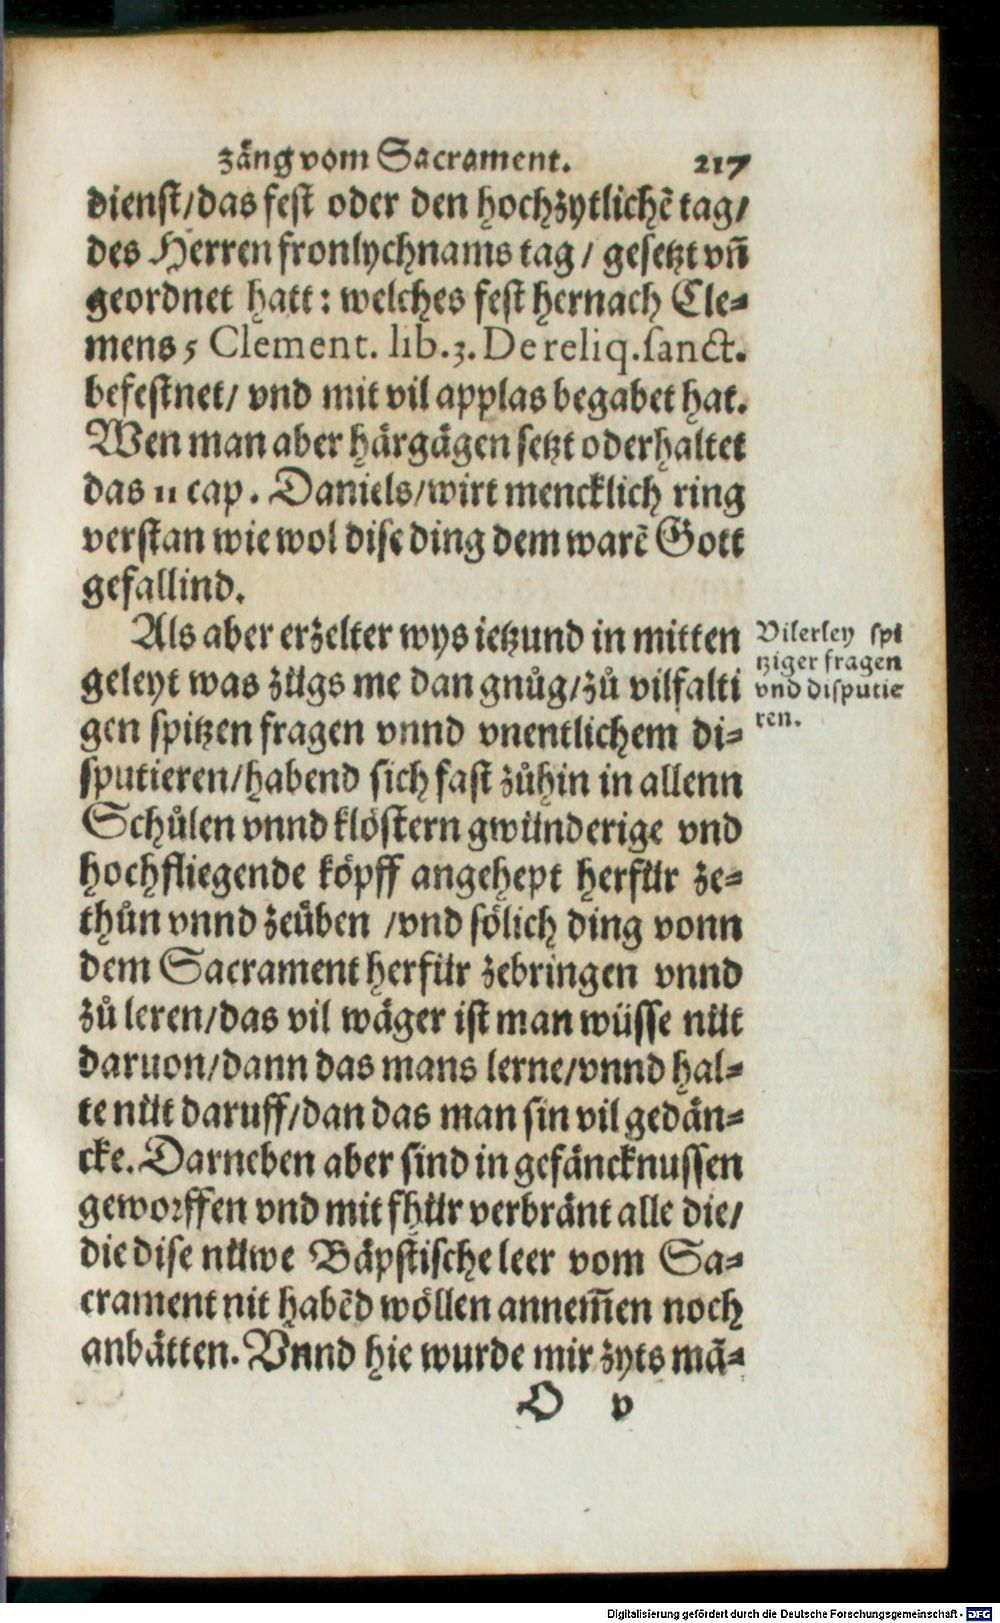 zäng vom Sacrament. 217
dienst/das fest oder den hochzytlichē tag/
des Herren fronlychnams tag / gesetzt vn̄
geordnet hatt: welches fest hernach Cle-
mens 5 Clement. lib.3. De reliq. sanct.
befestnet/ vnd mit vil applas begabet hat.
Wen man aber härgägen setzt oder haltet
das 11 cap. Daniels/wirt mencklich ring
verstan wie wol dise ding dem warē Gott
gefallind.
Als aber erzelter wys ietzund in mitten
geleyt was zügs me dan gnůg/zů vilfalti
gen spitzen fragen vnnd vnentlichem di-
sputieren/habend sich fast zůhin in allenn
Schůlen vnnd klöstern gwünderige vnd
hochfliegende köpff angehept herfür ze-
thůn vnnd zeüben /vnd sölich ding vonn
dem Sacrament herfür zebringen vnnd
zů leren/das vil wäger ist man wüsse nüt
daruon/dann das mans lerne/vnnd hal-
te nüt daruff/dan das man sin vil gedän-
cke. Darneben aber sind in gefäncknussen
geworffen vnd mit fhür verbränt alle die/
die dise nüwe Bäpstische leer vom Sa-
crament nit habēd wöllen annem̄en noch
anbätten. Vnnd hie wurde mir zyts mā-
O v
Vilerley spi
tziger fragen
vnd disputie
ren.
Digitalisierung gefördert durch die Deutsche Forschungsgemeinschaft - DFG